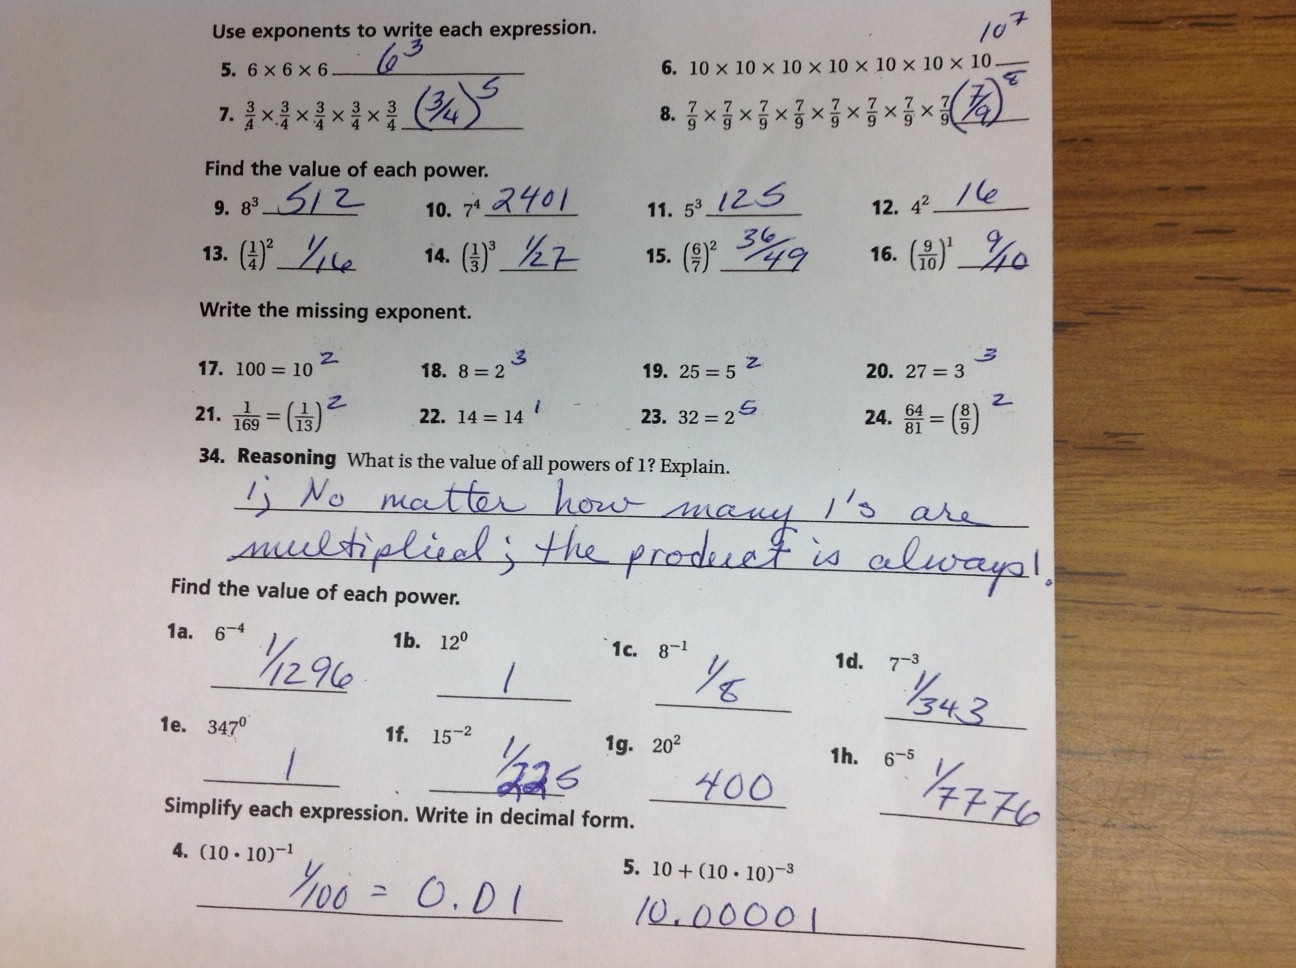 Use exponents to write each expression.
5. 6 × 6 × 6 6³ 6. 10 × 10 × 10 × 10 × 10 × 10 × 10 10⁷
7. 3/4 × 3/4 × 3/4 × 3/4 × 3/4 (3/4)⁵ 8. 7/9 × 7/9 × 7/9 × 7/9 × 7/9 × 7/9 × 7/9 × 7/9 (7/9)⁸
Find the value of each power.
9. 8³ 512 10. 7⁴ 2401 11. 5³ 125 12. 4² 16
13. (1/4)² 1/16 14. (1/3)³ 1/27 15. (6/7)² 36/49 16. (9/10)¹ 9/10
Write the missing exponent.
17. 100 = 10 ² 18. 8 = 2 ³ 19. 25 = 5 ² 20. 27 = 3 ³
21. 1/169 = (1/13) ² 22. 14 = 14 ¹ 23. 32 = 2 ⁵ 24. 64/81 = (8/9) ²
34. Reasoning What is the value of all powers of 1? Explain.
1; No matter how many 1's are
multiplied; the product is always 1.
Find the value of each power.
1a. 6⁻⁴ 1/1296 1b. 12⁰ 1 1c. 8⁻¹ 1/8 1d. 7⁻³ 1/343
1e. 347⁰ 1 1f. 15⁻² 1/225 1g. 20² 400 1h. 6⁻⁵ 1/7776
Simplify each expression. Write in decimal form.
4. (10 • 10)⁻¹ 1/100 = 0.01 5. 10 + (10 • 10)⁻³ 10.00001